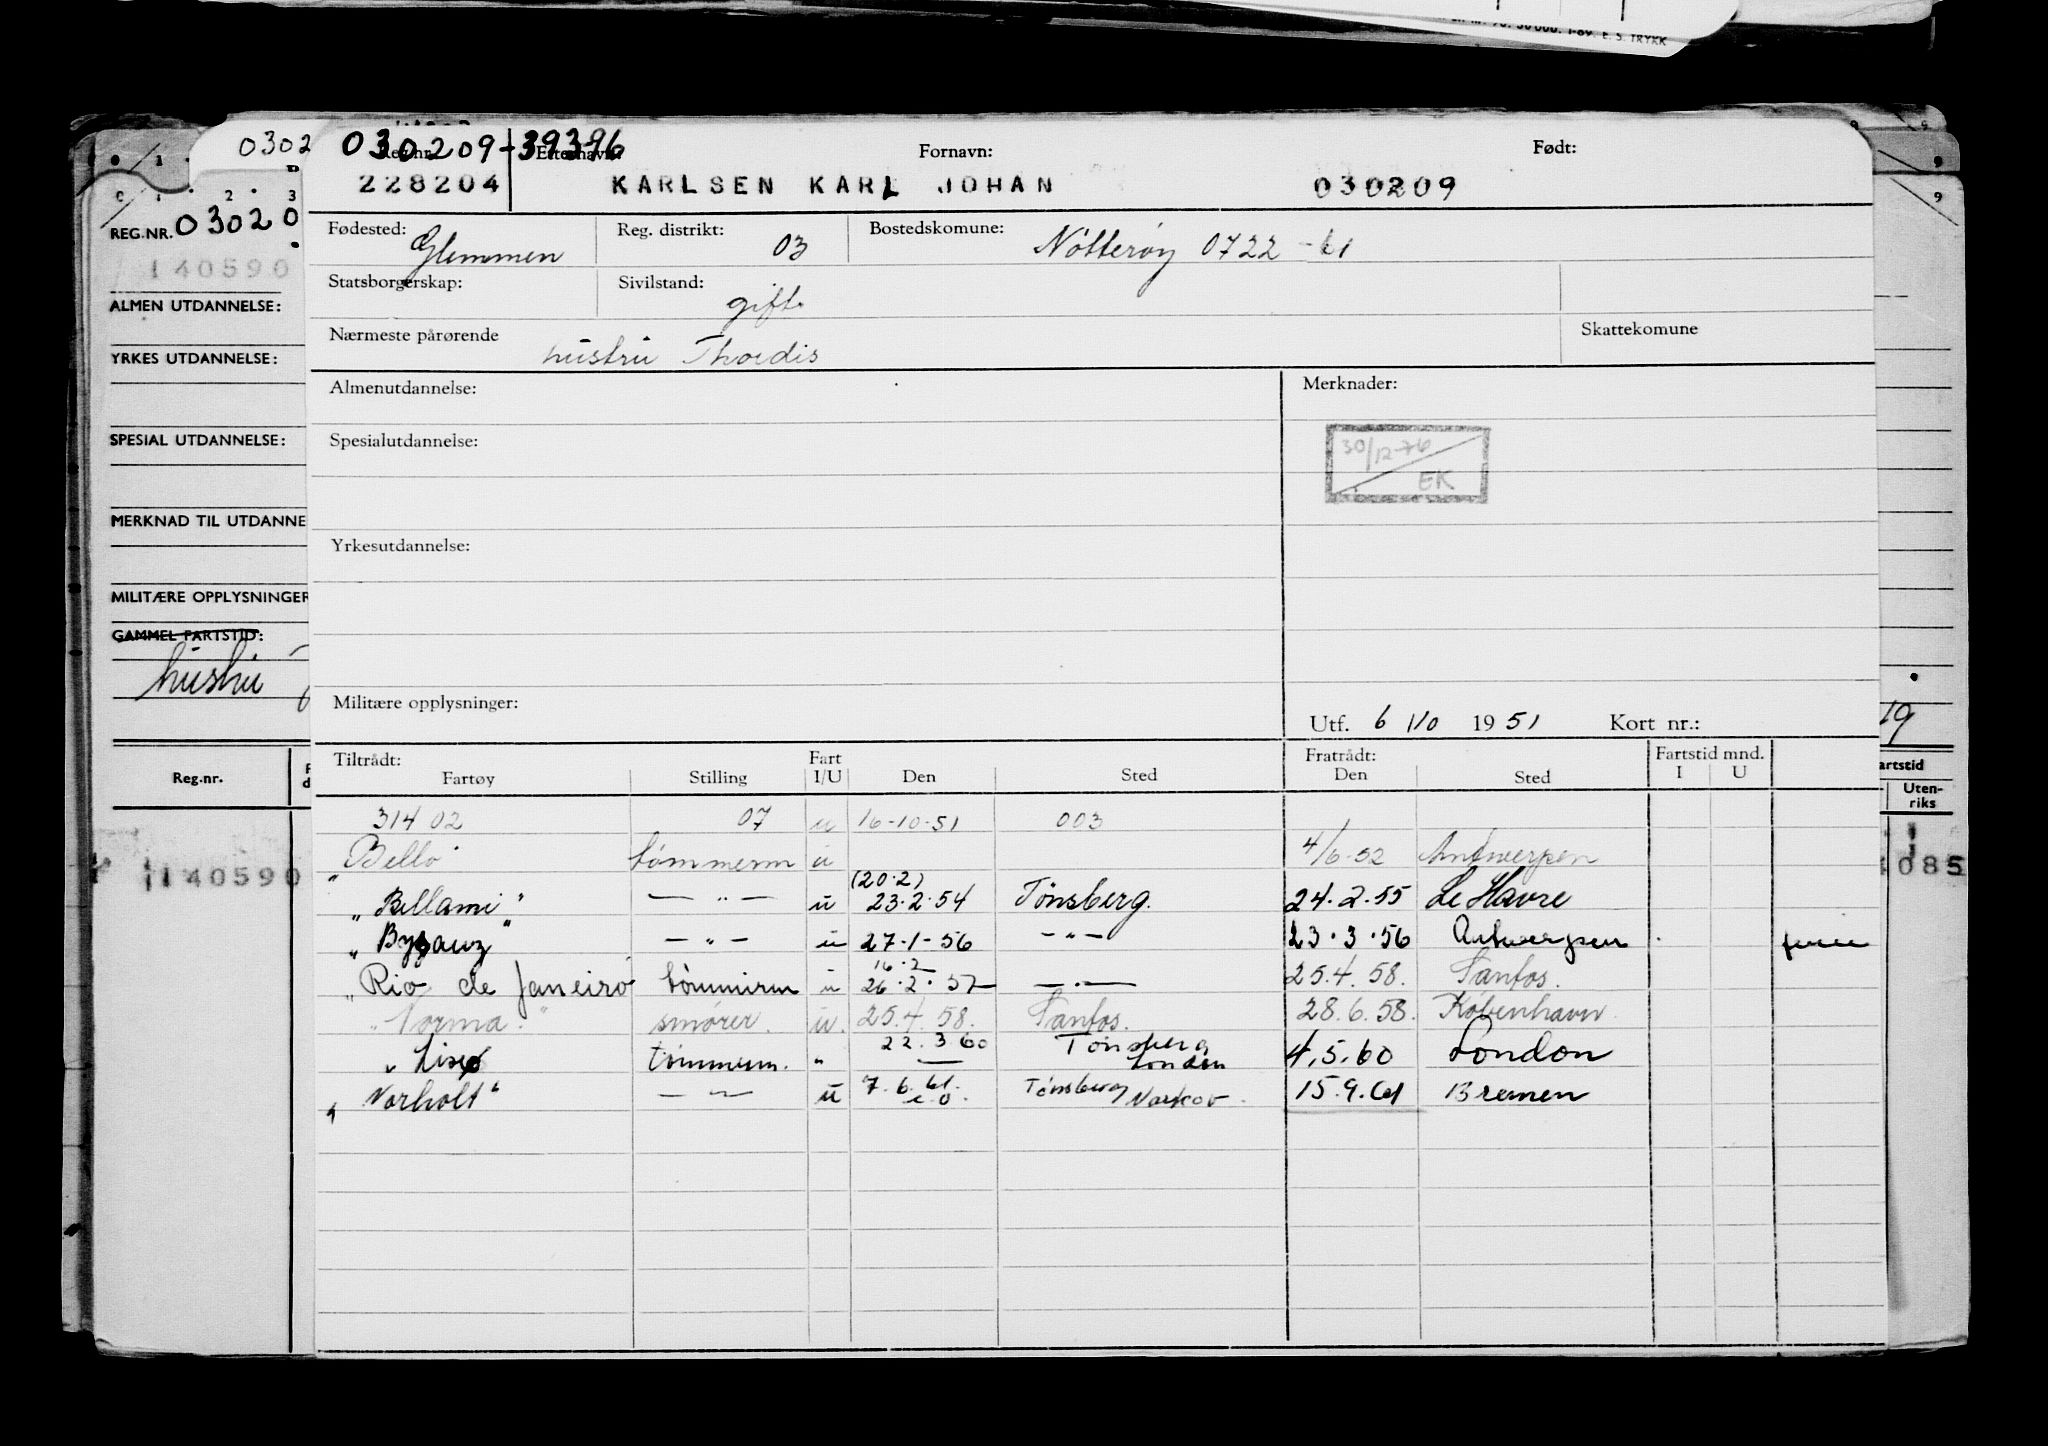 Nr. 70. 50 000. 1-69. E. S. TRYKK
0302 030209-39396
Reg.nr. Etternavn: Fornavn: Født:
228204 KARLSEN KARL JOHAN 030209
Fødested: Glemmen Reg. distrikt: 03 Bostedskomune: Nøtterøy 0722 -61
Statsborgerskap: Sivilstand: gift
Nærmeste pårørende hustru Thordis Skattekomune
Almenutdannelse: Merknader:
Spesialutdannelse: 30/12-76 EK
Yrkesutdannelse:
Militære opplysninger: Utf. 6/10 1951 Kort nr.:
Tiltrådt: Fartøy Stilling Fart I/U Den Sted Fratrådt: Den Sted Fartstid mnd. I U
314 02 07 u 16-10-51 003
"Bello" tømmerm u 4/6-52 Antwerpen
(20.2)
"Bellami" — " — u 23.2.54 Tønsberg. 24.2.55 Le Havre
"Byzanz" — " — u 27-1-56 — " — 23.3.56 Antwerpen ferie
16.2
"Rio de Janeiro tømmerm u 26.2.57 — " — 25.4.58. Santos.
"Norma." smører. u. 25.4.58. Santos. 28.6.58. København.
"Lisø tømmerm. " 22.3.60 Tønsberg London 4.5.60 London
"Norholt" — " — u 7.6.61. Tønsberg 15.9.61 Bremen
REG.NR. 03020
140590
ALMEN UTDANNELSE:
YRKES UTDANNELSE:
SPESIAL UTDANNELSE:
MERKNAD TIL UTDANNE
MILITÆRE OPPLYSNINGER
GAMMEL FARTSTID:
hustru
Reg.nr.
140590
19
artstid
Uten-
riks
085